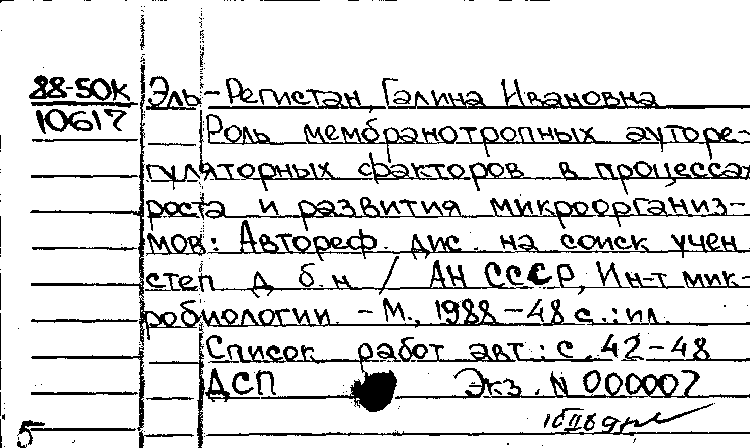 88-50К
10617
Эль-Регистан, Галина Ивановна
Роль мембранотропных ауторе-
гуляторных факторов в процессах
роста и развития микроорганиз-
мов: Автореф. дис. на соиск учен
степ д б.н / АН СССР, Ин-т мик-
робиологии. - М., 1988 - 48 с.: ил.
Список работ авт.: с. 42-48
ДСП Экз. N 000007
5